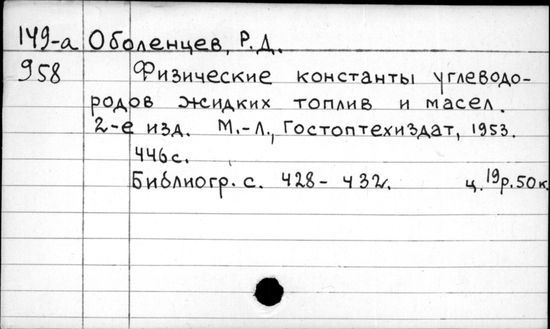 149-а Оболенцев, Р.Д.
958 Физические константы углеводо-
родов жидких топлив и масел.
2-е изд. М.-Л., Гостоптехиздат, 1953.
446с.
Библиогр. с. 428-432. ц. 19р.50к.